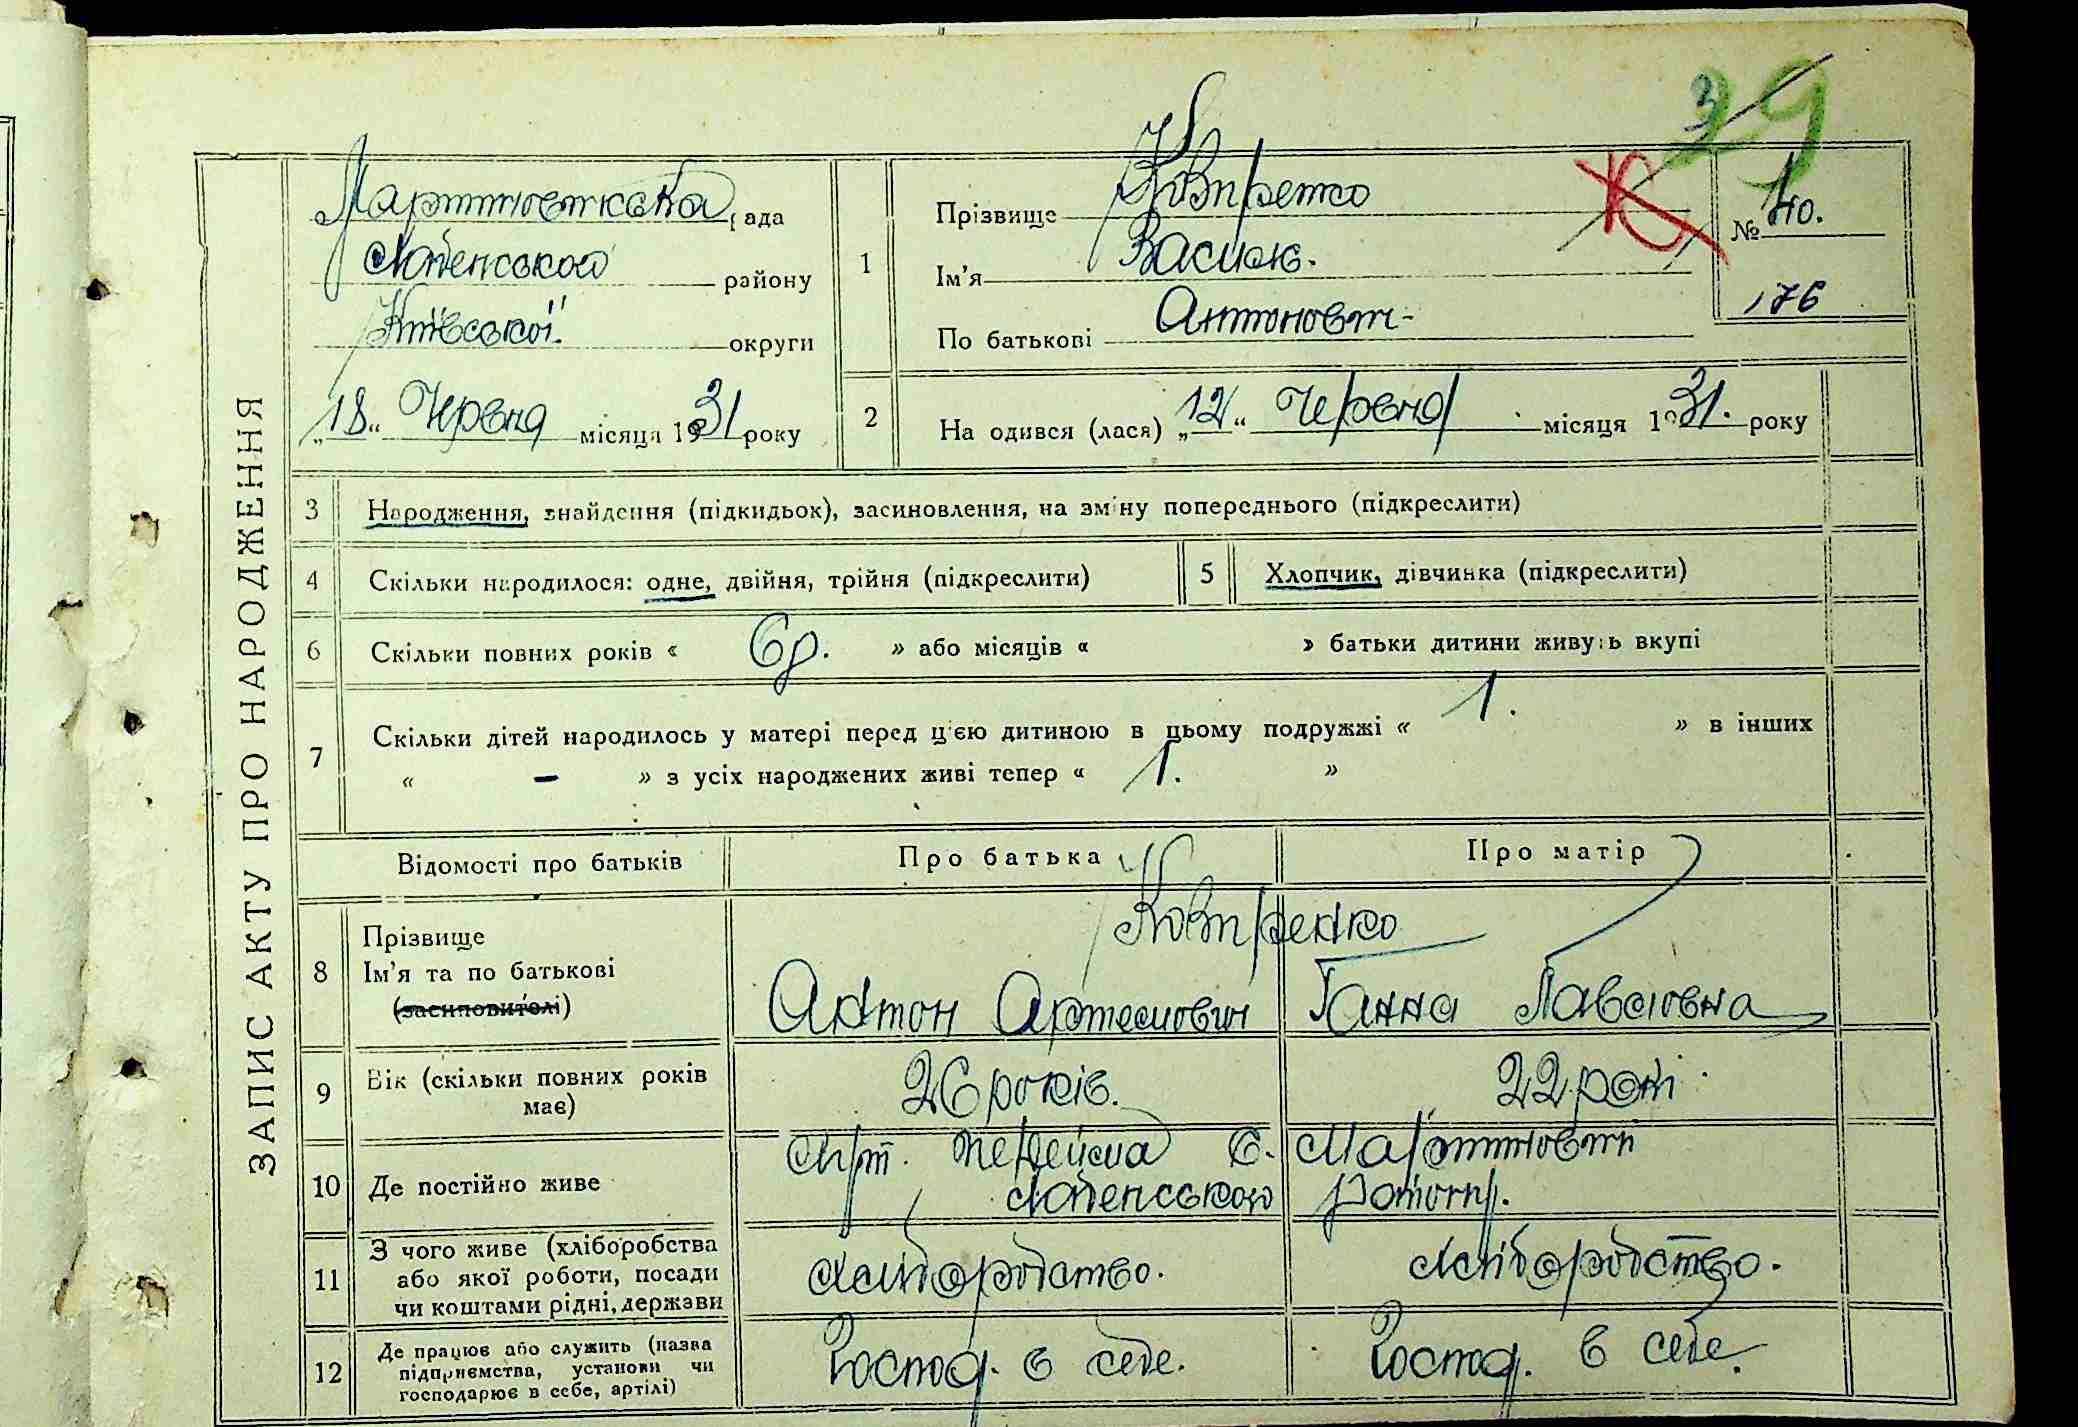 29
ЗАПИС АКТУ ПРО НАРОДЖЕННЯ
Мартиновська рада
района району
Київської округи
„18“ Червня місяця 1931 року
1 Прізвище Ковтренко
Ім’я Василь.
По батькові Антонович
№ 40.
176
2 На одився (лася) „12“ Червня місяця 1931. року
3 Народження, знайдення (підкидьок), засиновлення, на зміну попереднього (підкреслити)
4 Скільки народилося: одне, двійня, трійня (підкреслити)
5 Хлопчик, дівчинка (підкреслити)
6 Скільки повних років « 6р. » або місяців « » батьки дитини живуть вкупі
7 Скільки дітей народилось у матері перед ц’єю дитиною в цьому подружжі « 1. » в інших
« – » з усіх народжених живі тепер « 1. »
Відомості про батьків Про батька Про матір
8 Прізвище
Ім’я та по батькові
(засиновителі)
Антон Артемович Ганна Павловна
9 Вік (скільки повних років має)
26 років. 22 роки
10 Де постійно живе
с. Мартинові
11 З чого живе (хліборобства або якої роботи, посади чи коштами рідні, держави
Хліборобство. Хліборобство.
12 Де працює або служить (назва підприємства, установи чи господарює в себе, артілі)
Господ. в себе. Господ. в себе.